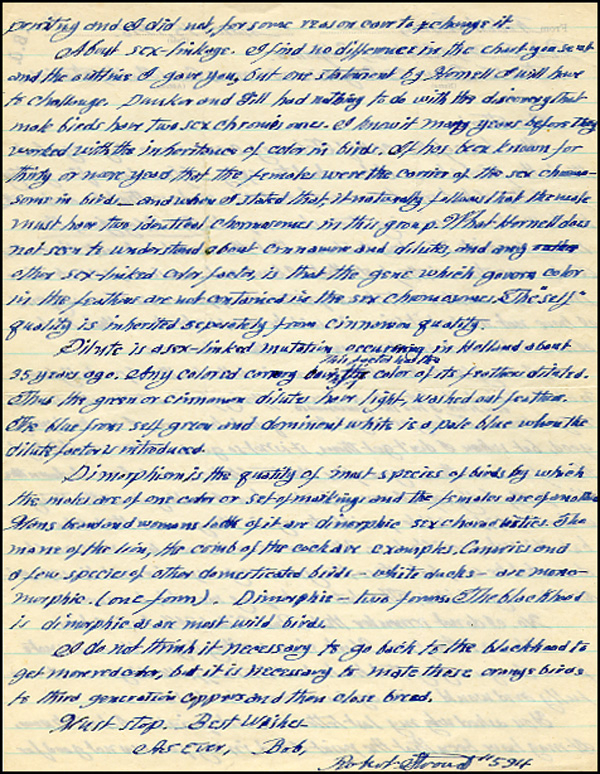 printing and I did not, for some reason care to change it.
About sex-linkage. I find no difference in the chart you sent
and the outline I gave you, but one statement by Hornell I will have
to challenge. Dunker and Gill had nothing to do with the discovery that
male birds have two sex chromosomes. I know it many years before they
worked with the inheritance of color in birds. It has been known, for
thirty or more years, that the females were the carrier of the sex chromo-
some in birds — and when I stated that it naturally follows that the male
must have two identical chomosomes in this group. What Hornell does
not seem to understand about cinnamon and dilute, and any
other sex-linked color factor, is that the gene which govern color
in the feathers are not contained in the sex chomosomes. The "self"
quality is inherited seperately from cinnamon quality.
Dilute is a sex-linked mutation occurring in Holland about
This factor had the
35 years ago. Any colored canary the color of its feathers diluted.
Thus the green or cinnamon dilutes have light, washed out feathers.
The blue from self green and dominent white is a pale blue when the
dilute factor is introduced.
Dimorphism is the quality of most species of birds by which
the males are of one color or set of markings and the females are of another
Mans beard and womans lack of it are dimorphic sex characteristics. The
mane of the lion, the comb of the cock are examples. Canaries and
a few species of other domesticated birds — white ducks — are mono-
morphic. (one form). Dimorphic — two forms. The blackhood
is dimorphic as are most wild birds.
I do not think it necessary to go back to the blackhood to
get more red color, but it is necessary to mate those orange birds
to third generation coppers and then close breed.
Must stop. Best Wishes
As Ever, Bob,
Robert Stroud #594